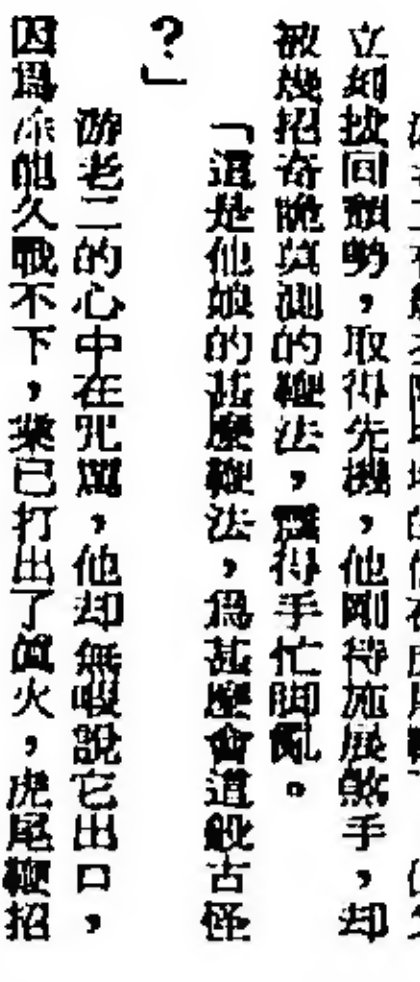 立刻扳回頹勢，取得先機，他剛待施展煞手，却
被幾招奇詭莫測的鞭法，弄得手忙脚亂。
「這是他娘的甚麼鞭法，爲甚麼會這般古怪
？」
游老二的心中在咒罵，他却無暇說它出口，
因爲久戰不下，業已打出了眞火，虎尾鞭招